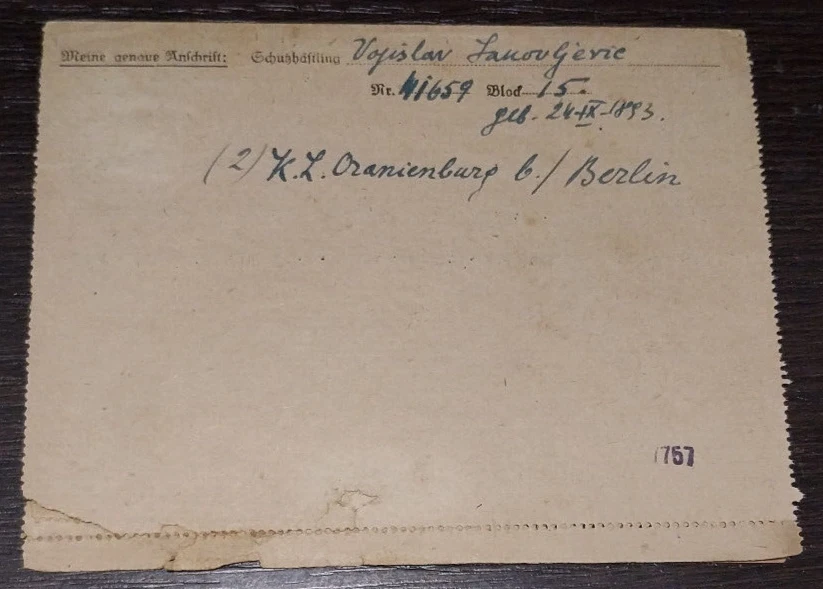 Meine genaue Anschrift: Schutzhäftling Vojislav Janovljević
Nr. 41659 Block 15.
geb. 24-IX-1893.
(2) K.L. Oranienburg b./Berlin
757